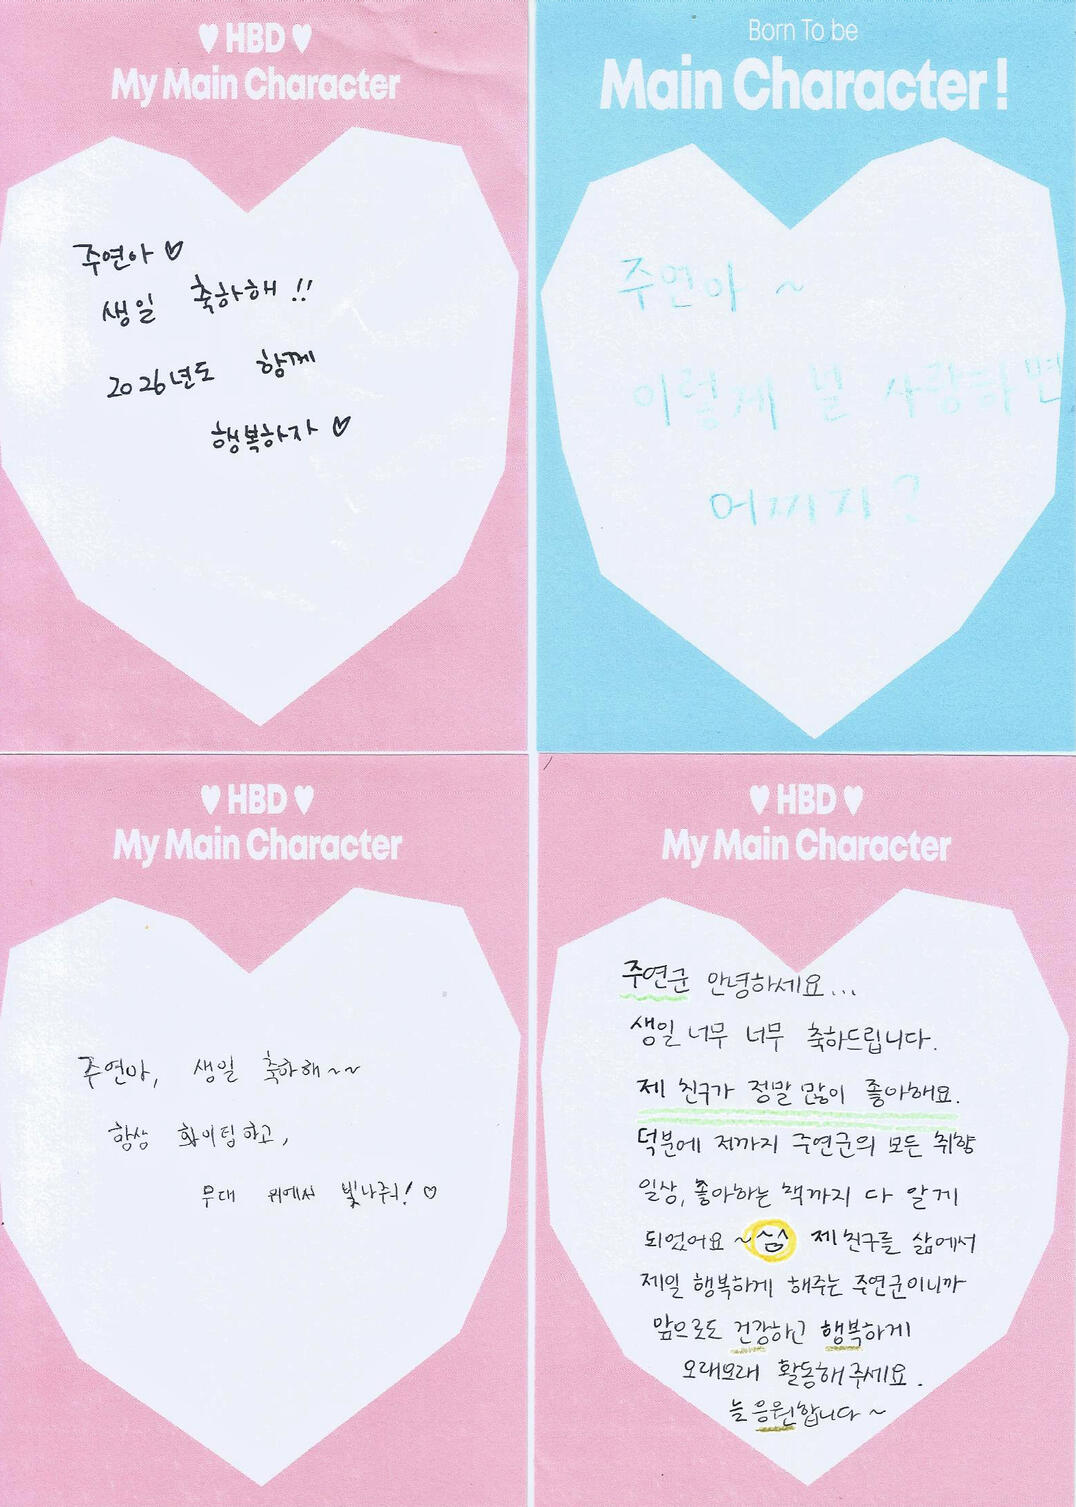 ♥ HBD ♥
My Main Character
주연아 ♡
생일 축하해!!
2026년도 함께
행복하자 ♡
Born To be
Main Character!
주연아 ~
이렇게 널 사랑하면
어찌지?
♥ HBD ♥
My Main Character
주연아, 생일 축하해~~
항상 화이팅하고,
무대 위에서 빛나줘! ♡
♥ HBD ♥
My Main Character
주연군 안녕하세요...
생일 너무 너무 축하드립니다.
제 친구가 정말 많이 좋아해요.
덕분에 저까지 주연군의 모든 취향
일상, 좋아하는 책까지 다 알게
되었어요~ 제 친구를 삶에서
제일 행복하게 해주는 주연군이니까
앞으로도 건강하고 행복하게
오래오래 활동해주세요.
늘 응원합니다~